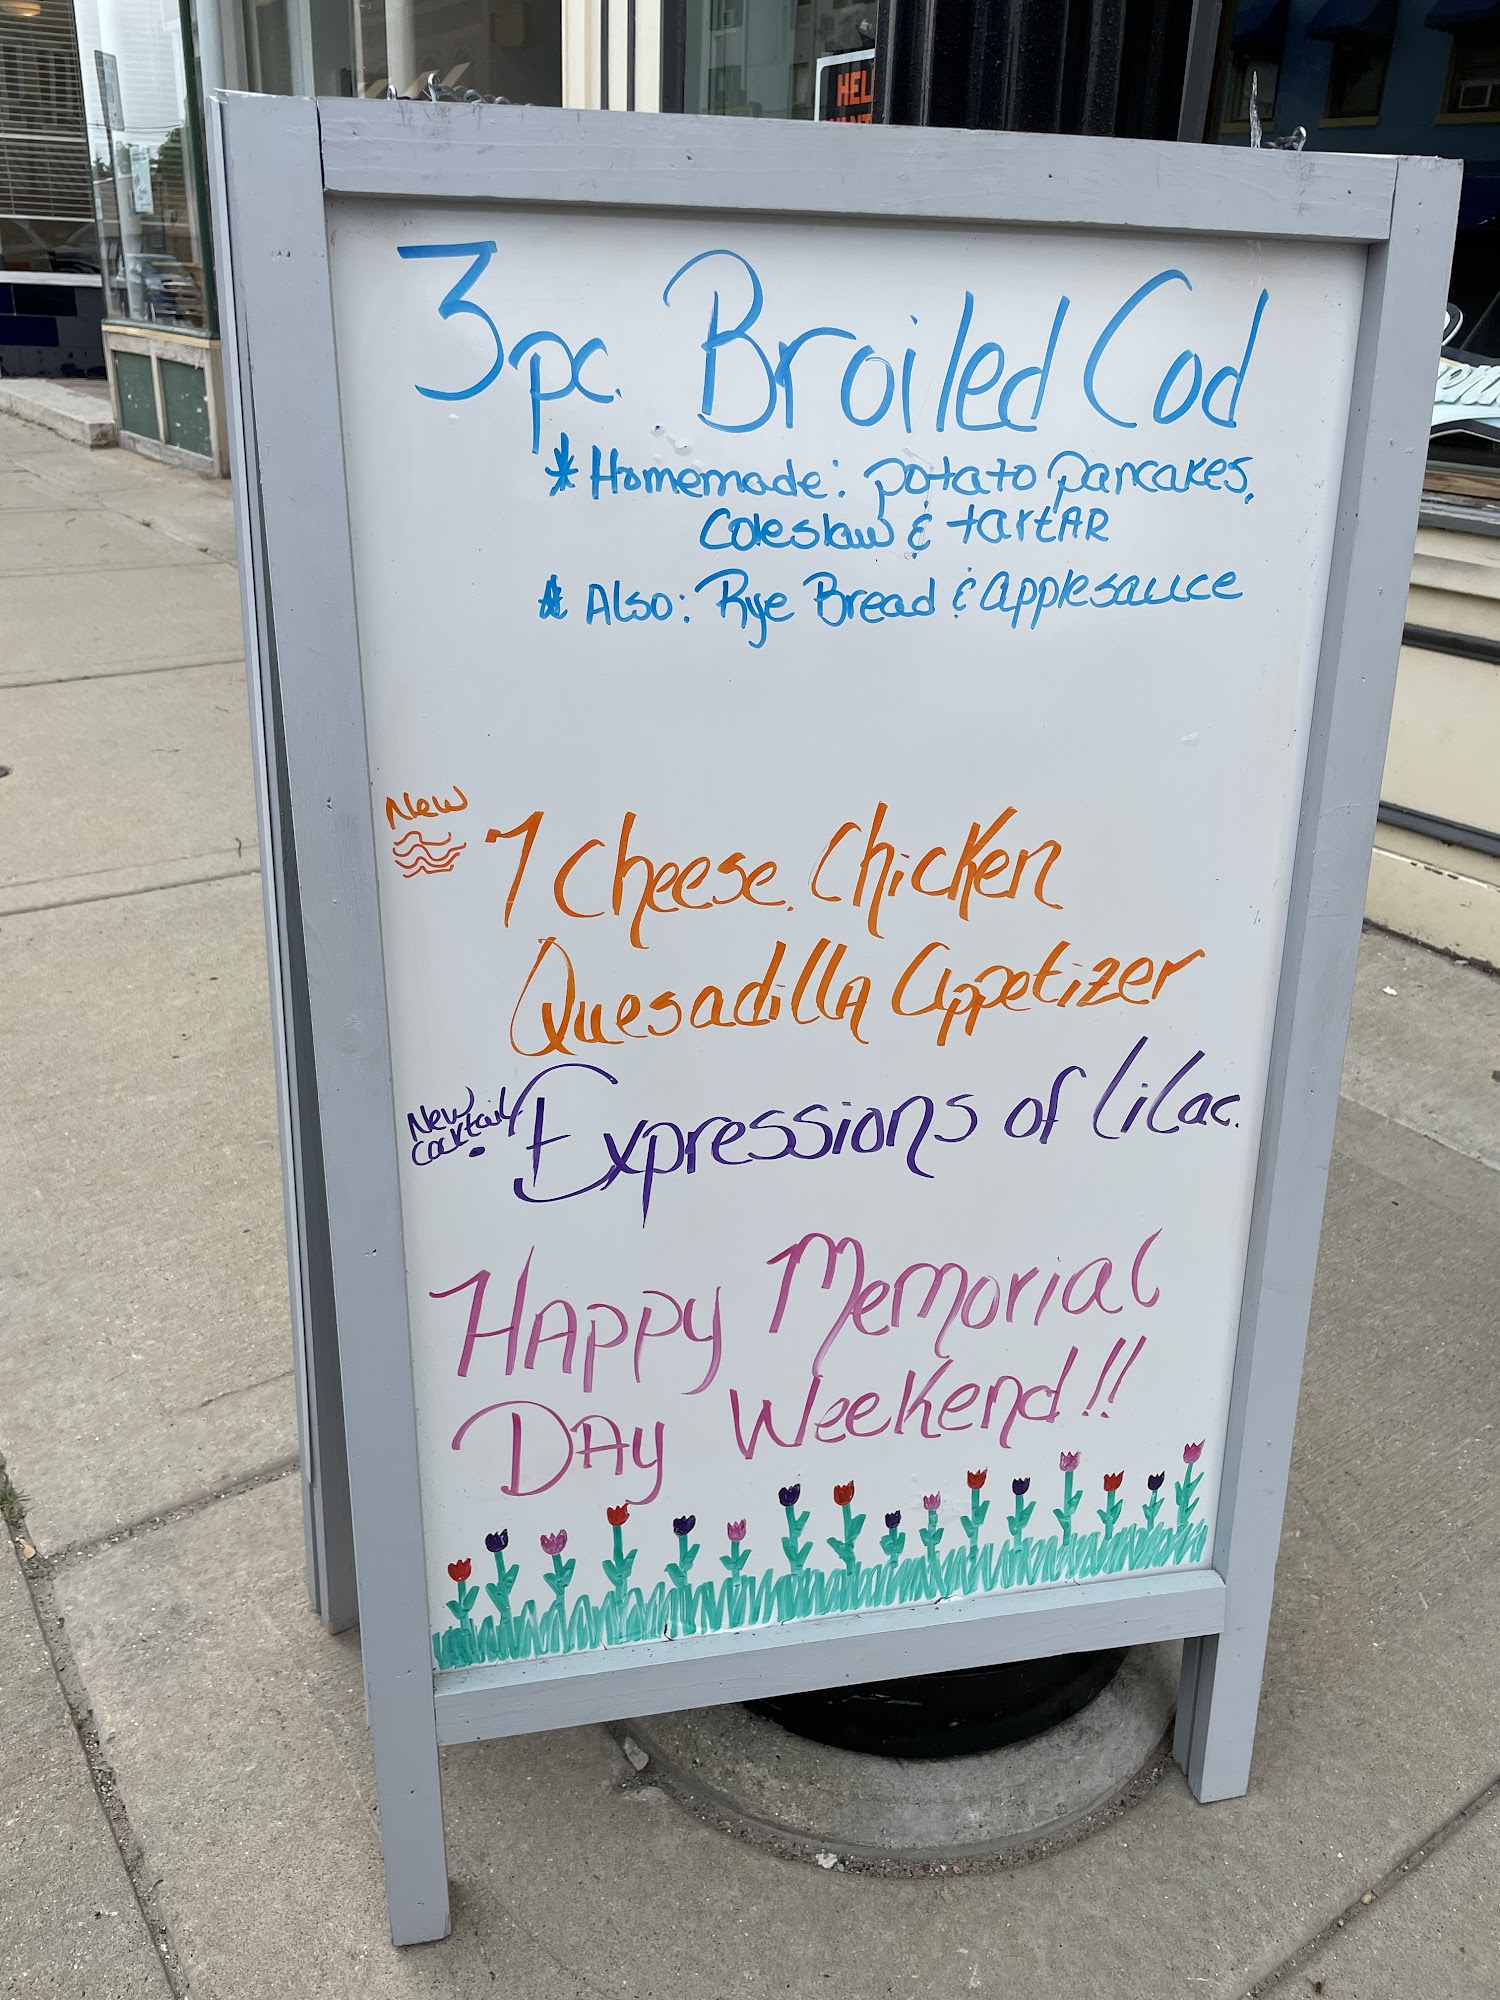 HEL
3 pc. Broiled Cod
* Homemade: potato pancakes,
Coleslaw & tartAR
* Also: Rye Bread & applesauce
New
7 Cheese. Chicken
QuesadillA Appetizer
New
Cocktail!
Expressions of Lilac.
HAppy Memorial
DAy Weekend!!